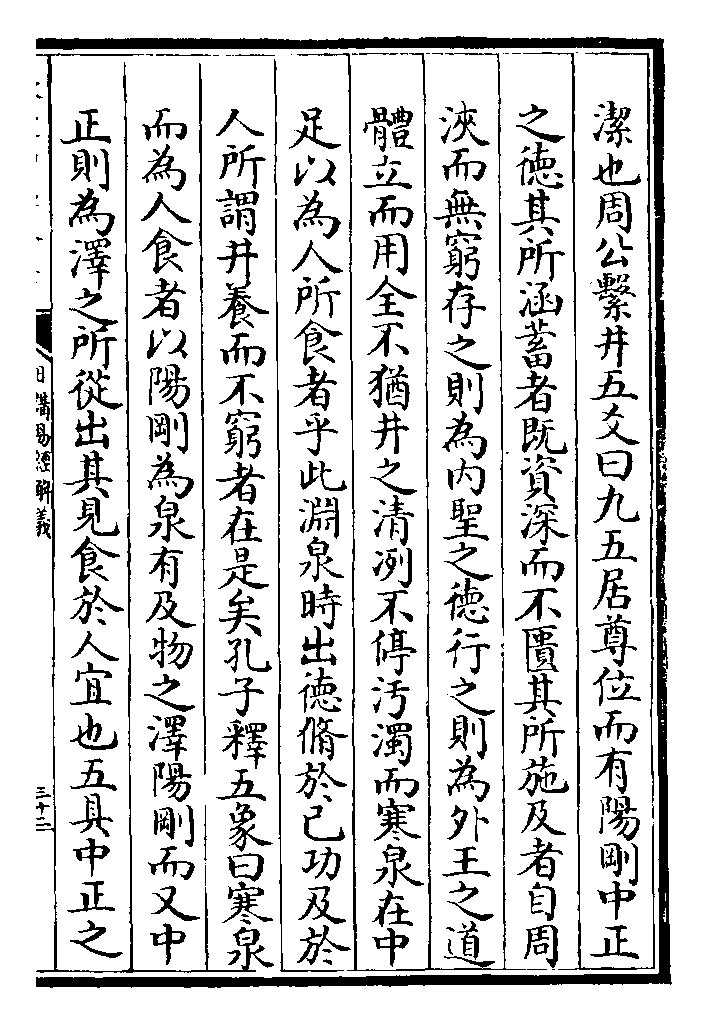 潔也周公繫井五爻曰九五居尊位而有陽剛中正
之德其所涵蓄者既資深而不匱其所施及者自周
浹而無窮存之則為內聖之德行之則為外王之道
體立而用全不猶井之清冽不停汚濁而寒泉在中
足以為人所食者乎此淵泉時出德脩於己功及於
人所謂井養而不窮者在是矣孔子釋五象曰寒泉
而為人食者以陽剛為泉有及物之澤陽剛而又中
正則為澤之所從出其見食於人宜也五具中正之
日講易經解義
三十二